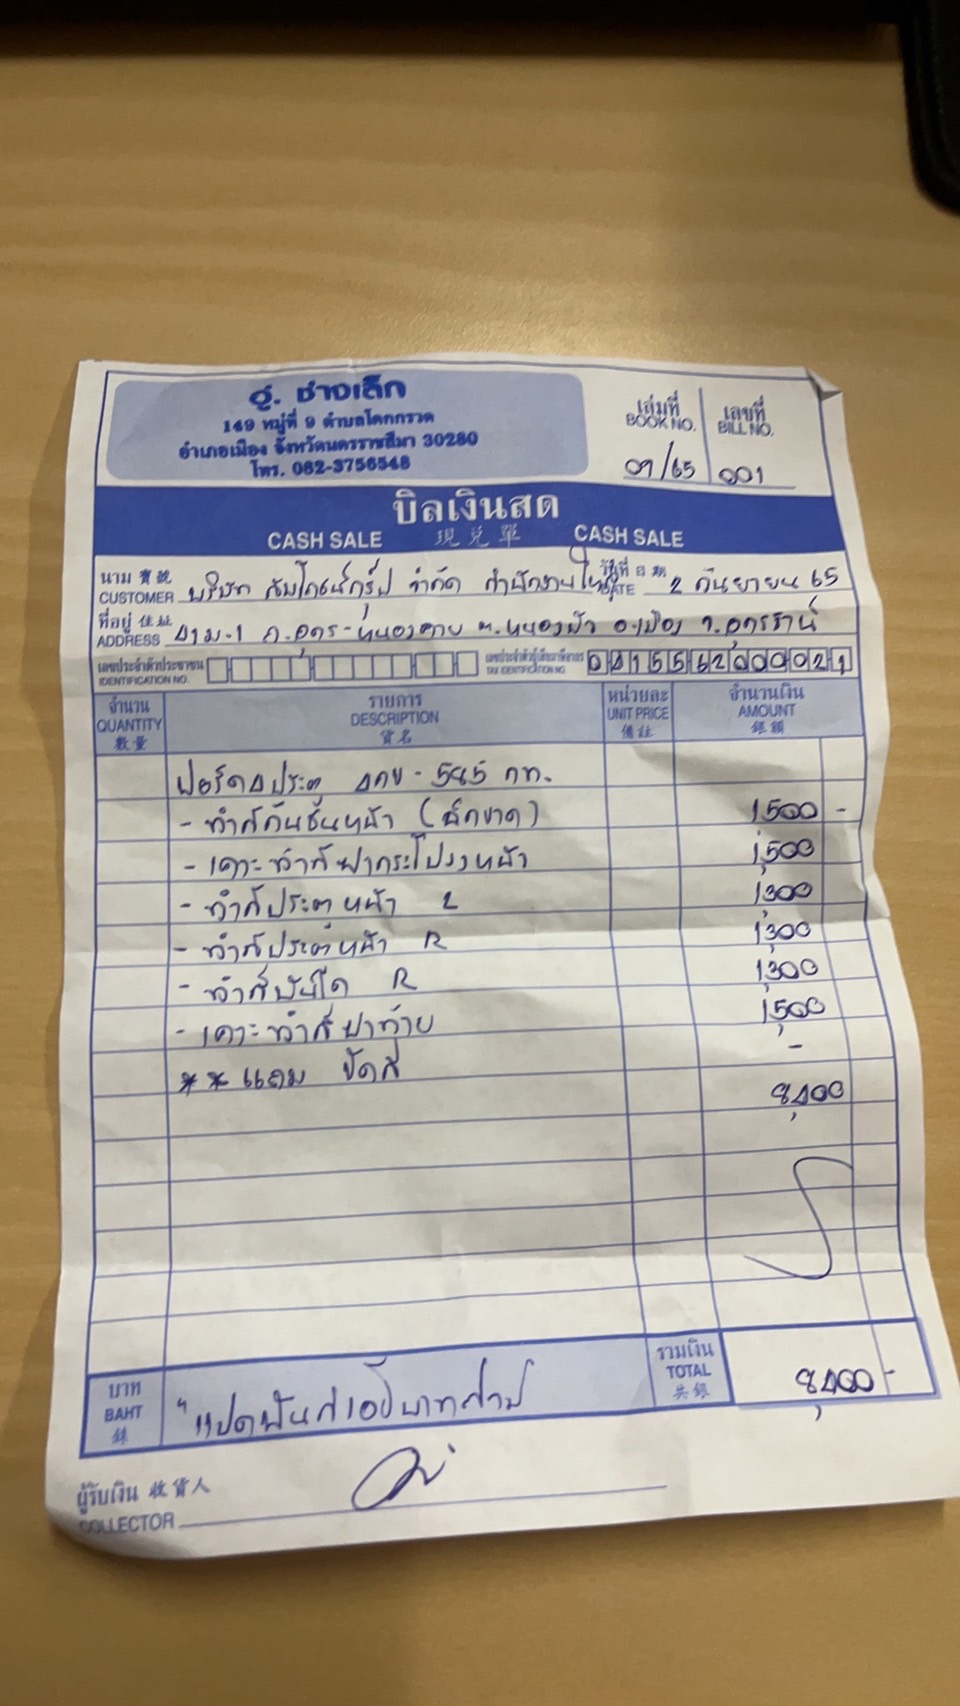 อู่. ช่างเล็ก
149 หมู่ที่ 9 ตำบลโคกกรวด
อำเภอเมือง จังหวัดนครราชสีมา 30280
โทร. 082-3756548
เล่มที่ เลขที่
BOOK NO. BILL NO.
09/65 001
บิลเงินสด
CASH SALE 現兌單 CASH SALE
นาม 寶號 วันที่ 日期
CUSTOMER บริษัท จำกัด สำนักงานใหญ่ DATE 2 กันยายน 65
ที่อยู่ 住址
ADDRESS ถ.อุดร-หนองคาย ต.หนองบัว อ.เมือง จ.อุดรธานี
เลขประจำตัวประชาชน
IDENTIFICATION NO.
เลขประจำตัวผู้เสียภาษีอากร 0415562000021
TAX IDENTIFICATION NO.
จำนวน รายการ หน่วยละ จำนวนเงิน
QUANTITY DESCRIPTION UNIT PRICE AMOUNT
數量 貨名 備註 銀額
ฟอร์ด 4 ประตู 585 กท.
- ทำสีกันชนหน้า (ฉีกขาด) 1,500 -
- เคาะทำสีฝากระโปรงหน้า 1,500
- ทำสีประตูหน้า L 1,300
- ทำสีประตูหน้า R 1,300
- ทำสีบันได R 1,300
- เคาะทำสีฝาท้าย 1,500
** แถม ขัดสี -
8,400
บาท รวมเงิน
BAHT "แปดพันสี่ร้อยบาทถ้วน TOTAL 8,400 -
銖 共銀
ผู้รับเงิน 收貨人
COLLECTOR